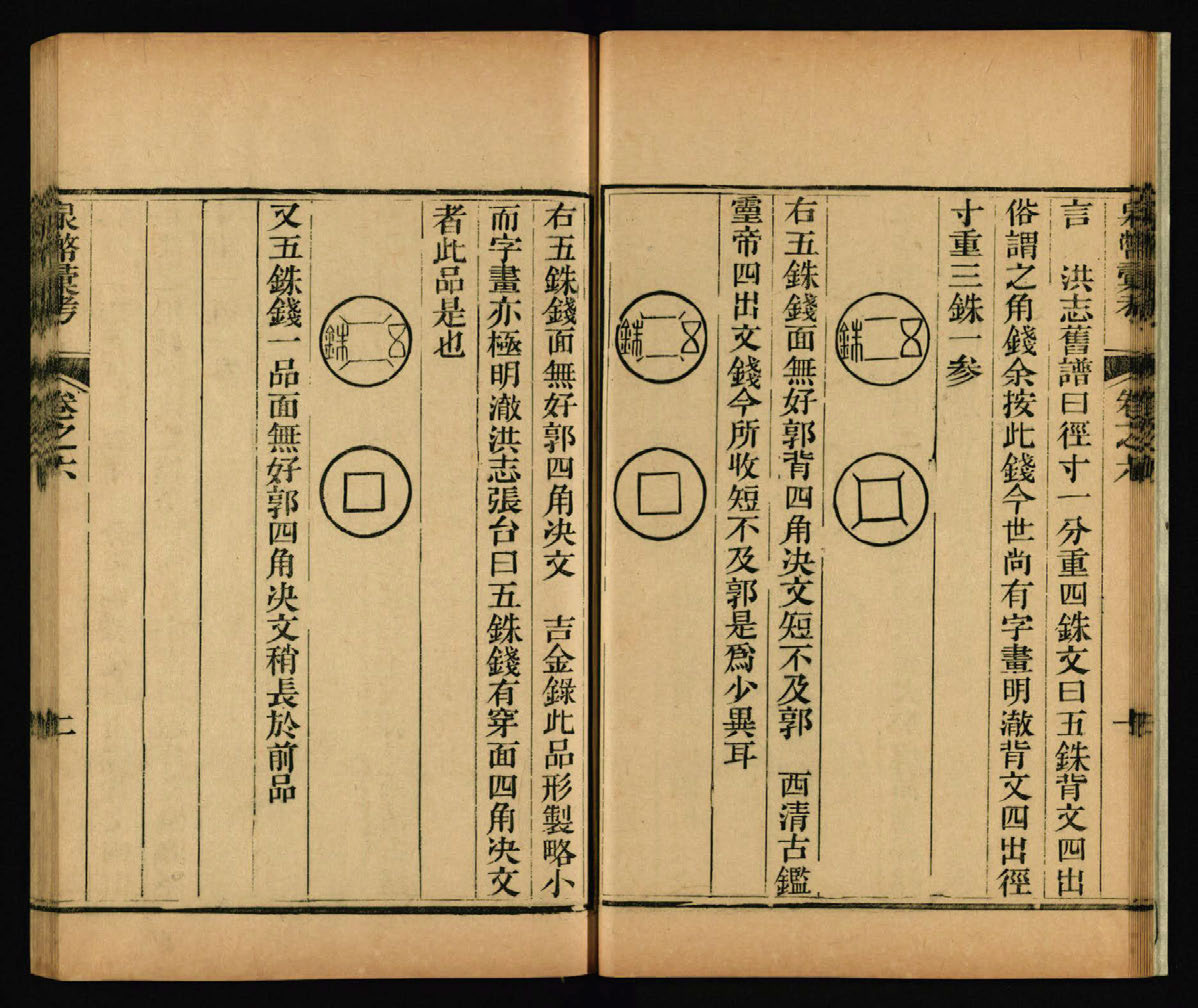 言　洪志舊譜曰徑寸一分重四銖文曰五銖背文四出
俗謂之角錢余按此錢今世尚有字畫明澈背文四出徑
寸重三銖一參
五銖
右五銖錢面無好郭背四角决文短不及郭　西清古鑑
靈帝四出文錢今所收短不及郭是爲少異耳
五銖
右五銖錢面無好郭四角决文　吉金錄此品形製略小
而字畫亦極明澈洪志張台曰五銖錢有穿面四角决文
者此品是也
五銖
又五銖錢一品面無好郭四角决文稍長於前品
泉幣彙考
卷之六
二